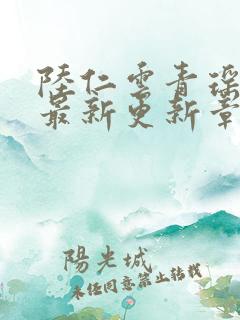 陸仁雲青瑶
最新更新章
陽光城
未经同意禁止转载